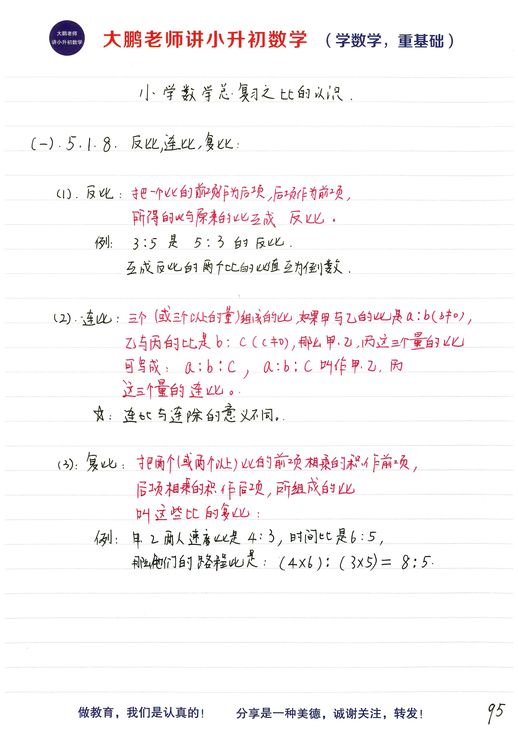 大鹏老师
讲小升初数学
大鹏老师讲小升初数学 (学数学，重基础)
小学数学总复习之比的认识.
(一).5.1.8. 反比,连比,复比:
(1). 反比: 把一个比的前项作为后项,后项作为前项,
所得的比与原来的比互成 反比。
例: 3:5 是 5:3 的反比.
互成反比的两个比的比值互为倒数.
(2). 连比: 三个(或三个以上的量)组成的比,如果甲与乙的比是a:b(b≠0),
乙与丙的比是b:c(c≠0),那么甲.乙.丙这三个量的比
可写成: a:b:c, a:b:c叫作甲.乙.丙
这三个量的连比。
注: 连比与连除的意义不同.
(3): 复比: 把两个(或两个以上)比的前项相乘的积作前项,
后项相乘的积作后项,所组成的比
叫这些比的复比:
例: 甲乙两人速度比是4:3,时间比是6:5,
那么他们的路程比是: (4×6):(3×5)=8:5.
做教育，我们是认真的! 分享是一种美德，诚谢关注，转发!
95